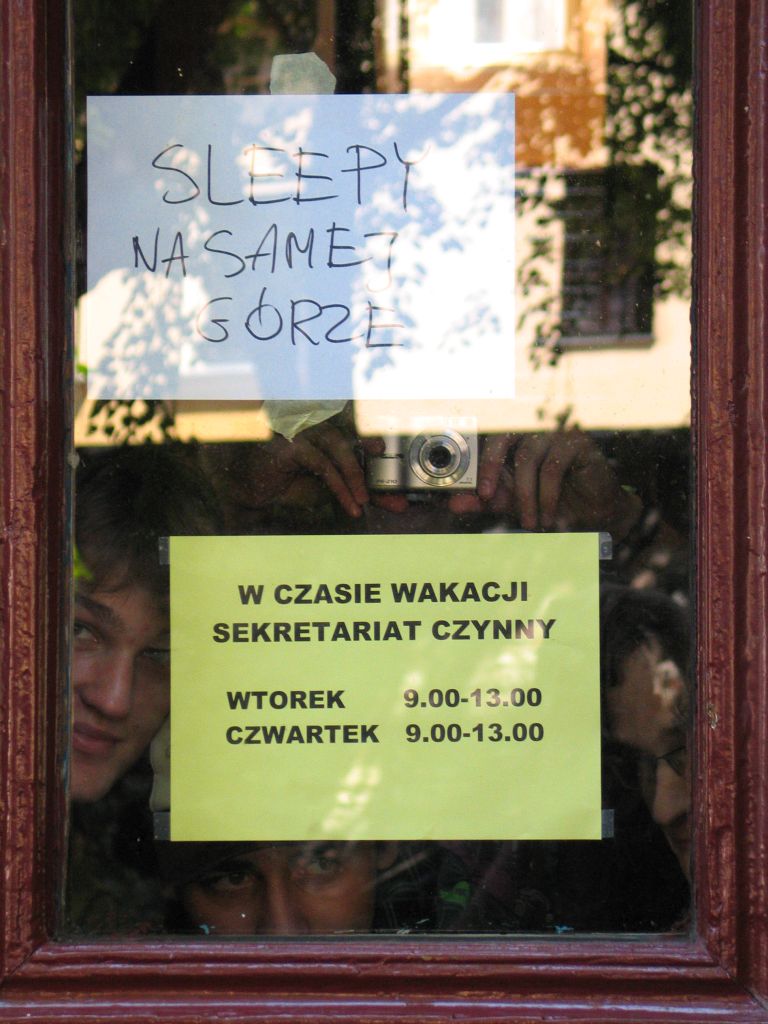 SLEEPY
NA SAMEJ
GÓRZE
W CZASIE WAKACJI
SEKRETARIAT CZYNNY
WTOREK 9.00-13.00
CZWARTEK 9.00-13.00